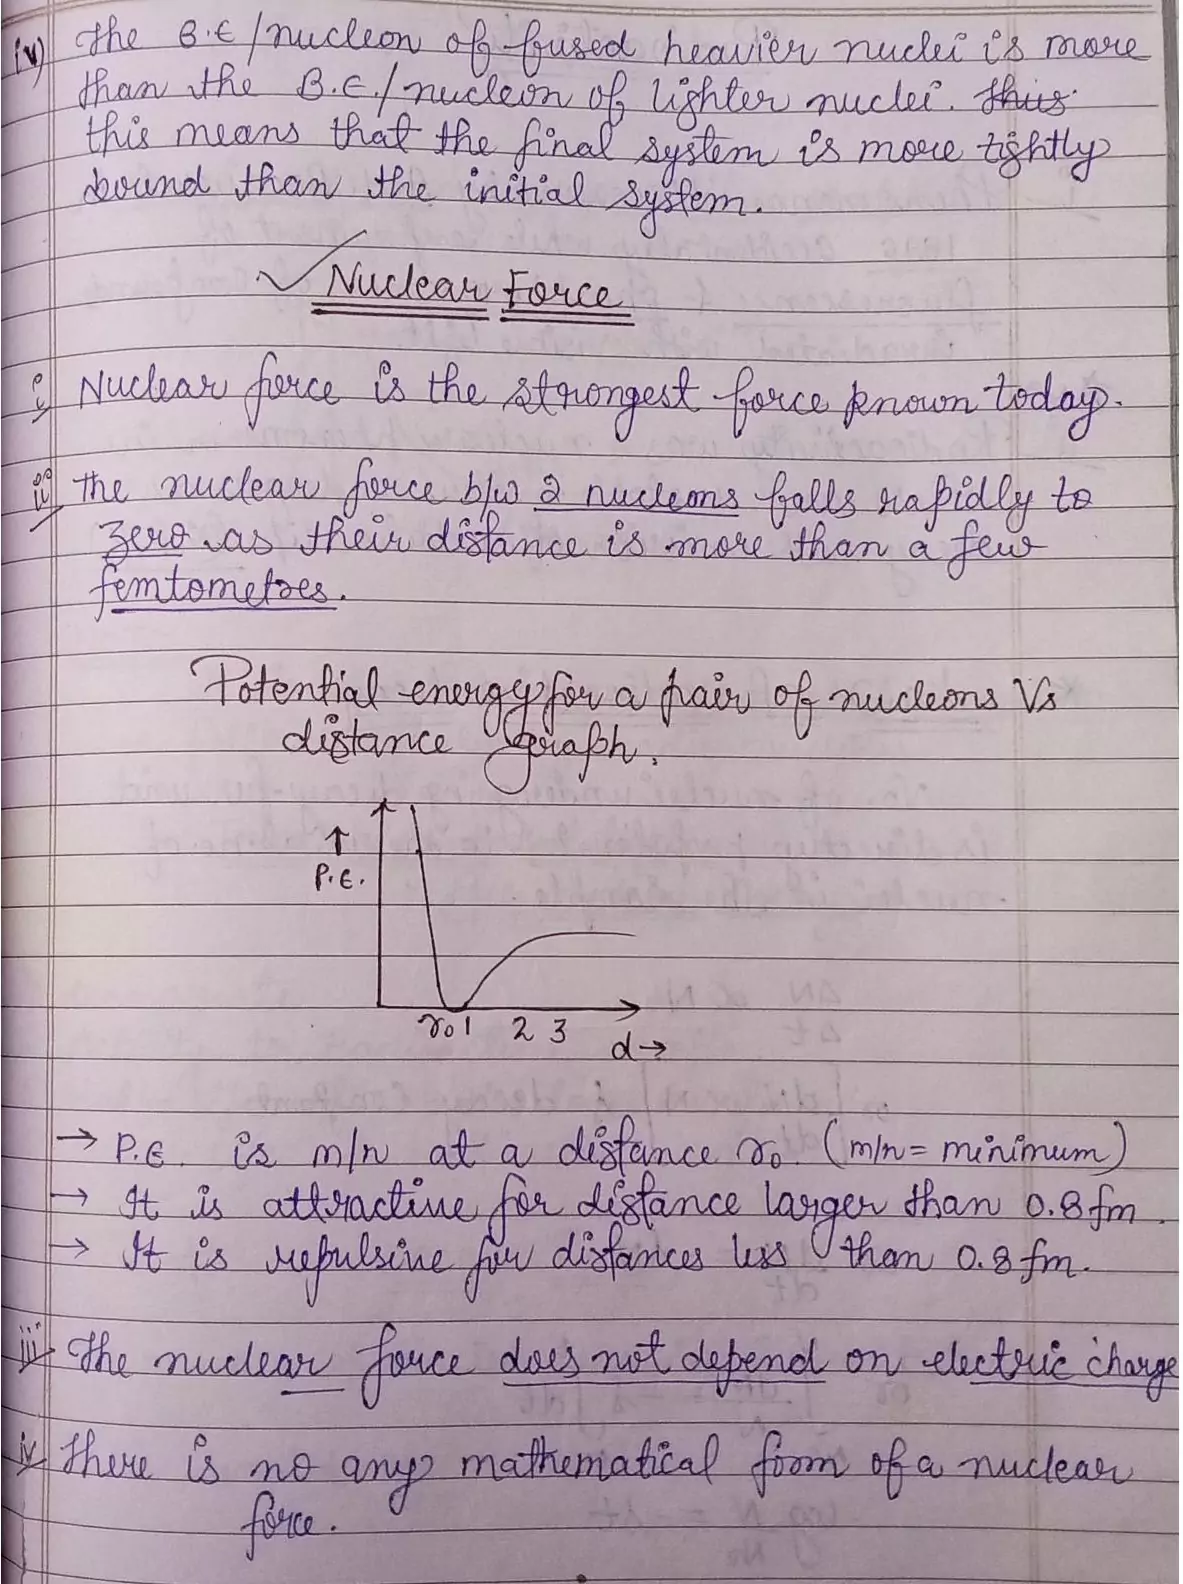 iv) The B.E/nucleon of fused heavier nuclei is more
than the B.E./nucleon of lighter nuclei. thus
this means that the final system is more tightly
bound than the initial system.
Nuclear Force
i) Nuclear force is the strongest force known today.
ii) The nuclear force b/w 2 nucleons falls rapidly to
zero as their distance is more than a few
femtometres.
Potential energy for a pair of nucleons Vs
distance graph.
↑
P.E.
r₀ 1 2 3
d→
→ P.E. is m/n at a distance r₀. (m/n = minimum)
→ It is attractive for distance larger than 0.8 fm.
→ It is repulsive for distances less than 0.8 fm.
iii) The nuclear force does not depend on electric charge
iv) There is no any mathematical form of a nuclear
force.